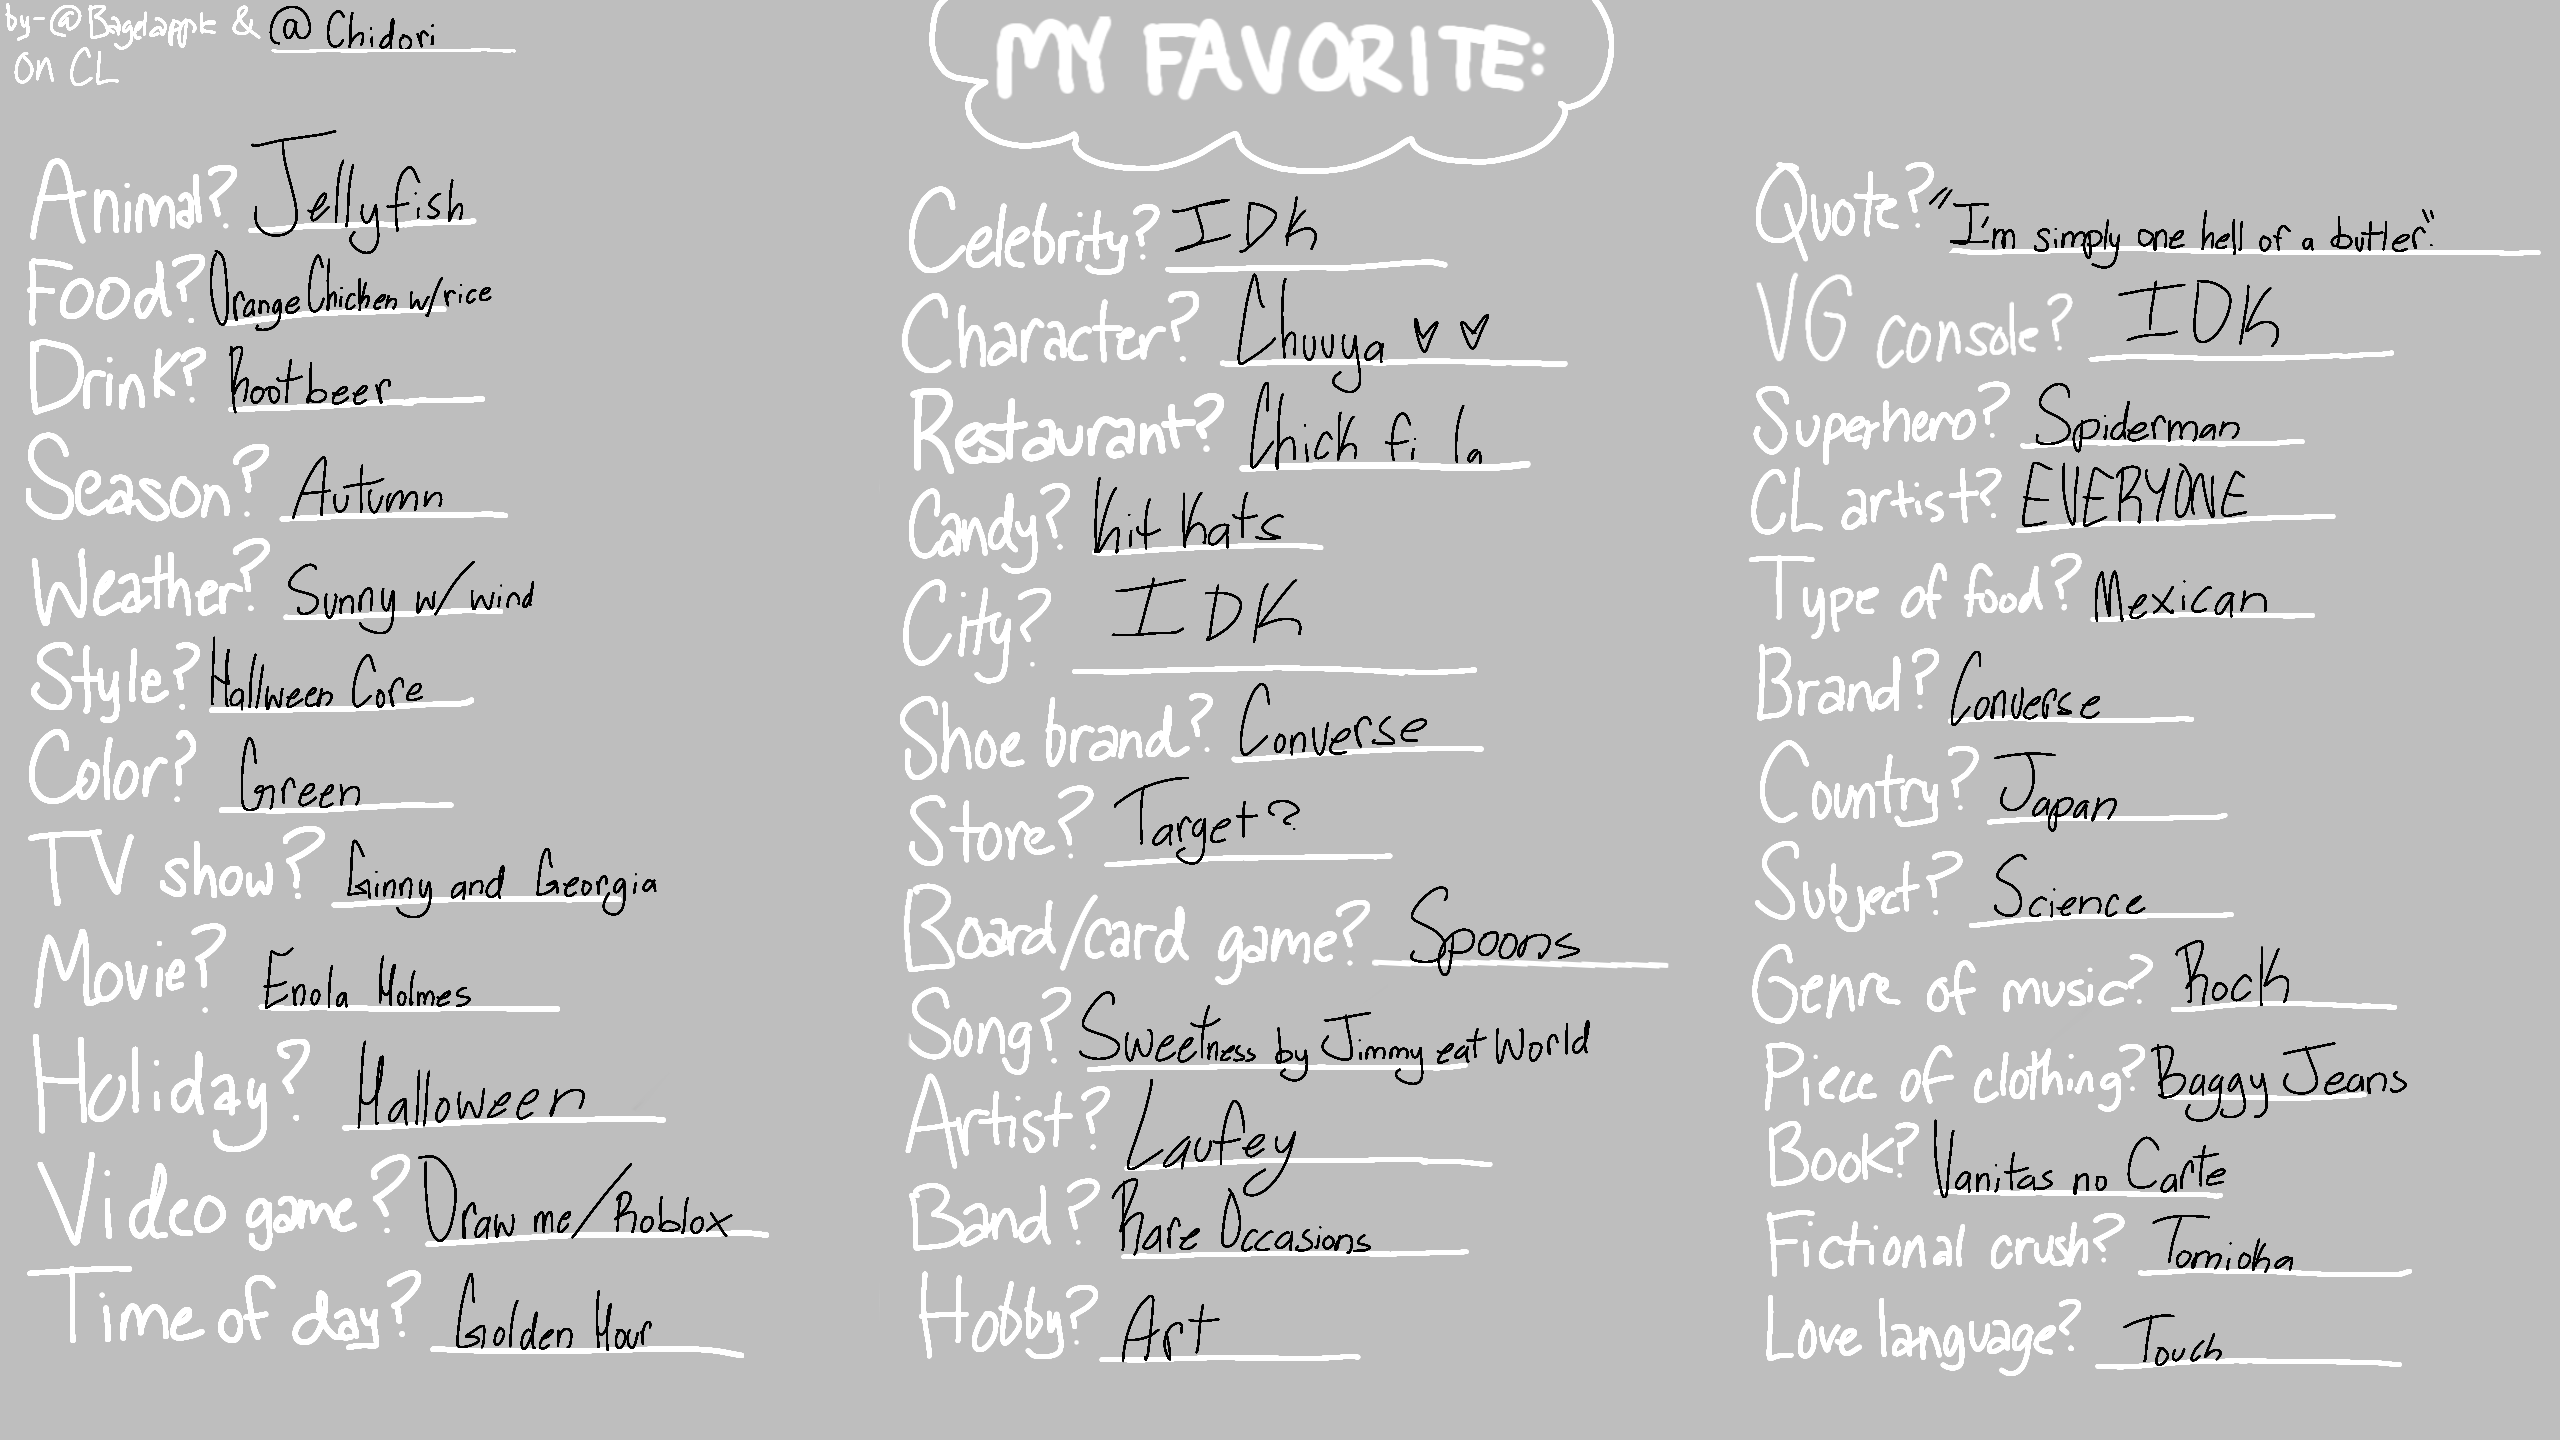 by-@Bagelapple & @Chidori
on CL
MY FAVORITE:
Animal? Jellyfish
Food? Orange Chicken w/rice
Drink? Rootbeer
Season? Autumn
Weather? Sunny w/ wind
Style? Hallween Core
Color? Green
TV show? Ginny and Georgia
Movie? Enola Holmes
Holiday? Halloween
Video game? Draw me/Roblox
Time of day? Golden Hour
Celebrity? IDK
Character? Chuuya ♥ ♥
Restaurant? Chick fi la
Candy? Kit Kats
City? IDK
Shoe brand? Converse
Store? Target?
Board/card game? Spoons
Song? Sweetness by Jimmy eat World
Artist? Laufey
Band? Rare Occasions
Hobby? Art
Quote? "I'm simply one hell of a butler."
VG console? IDK
Superhero? Spiderman
CL artist? EVERYONE
Type of food? Mexican
Brand? Converse
Country? Japan
Subject? Science
Genre of music? Rock
Piece of clothing? Baggy Jeans
Book? Vanitas no Carte
Fictional crush? Tomioka
Love language? Touch